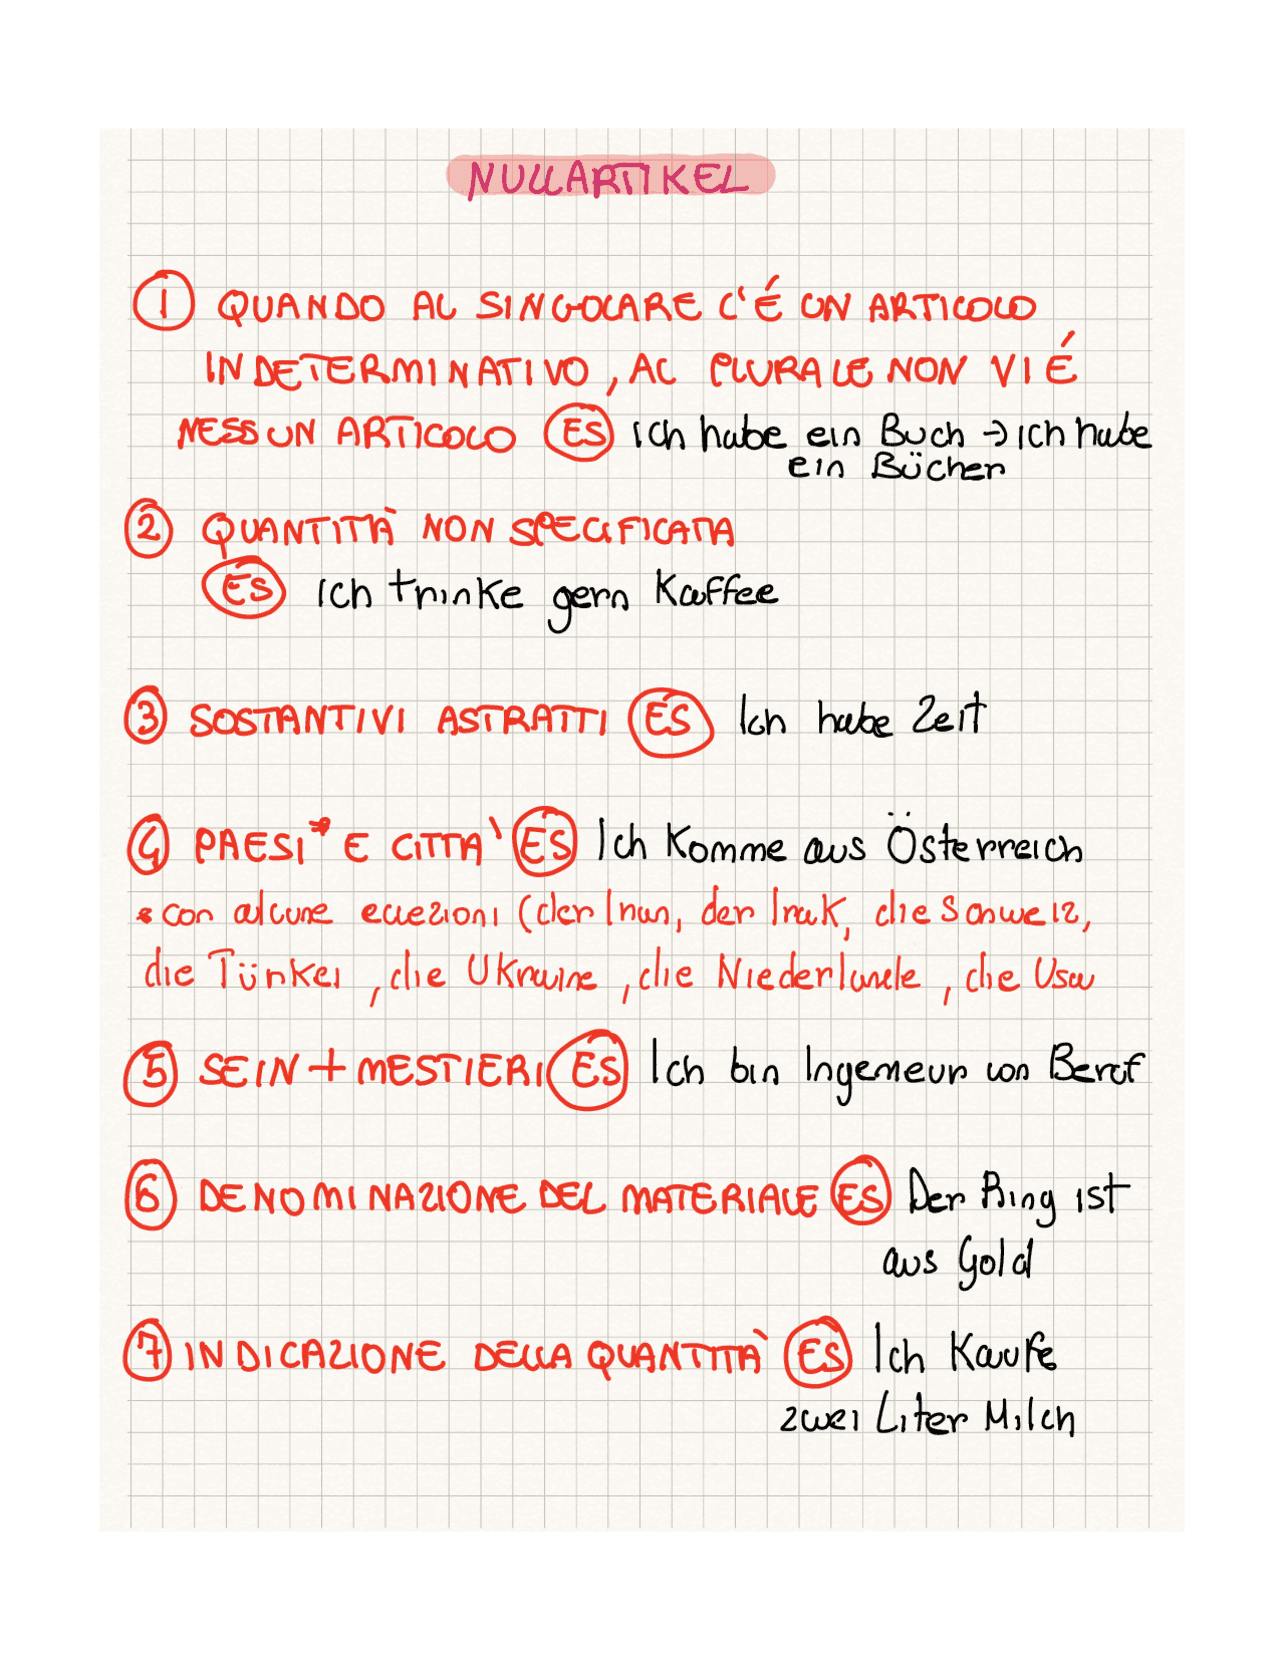 NULLARTIKEL
1 QUANDO AL SINGOLARE C'É UN ARTICOLO
INDETERMINATIVO, AL PLURALE NON VI É
NESSUN ARTICOLO ES Ich habe ein Buch → ich habe
ein Bücher
2 QUANTITÀ NON SPECIFICATA
ES Ich trinke gern Kaffee
3 SOSTANTIVI ASTRATTI ES Ich habe Zeit
4 PAESI* E CITTÀ ES Ich komme aus Österreich
*con alcune eccezioni (der Iran, der Irak, die Schweiz,
die Türkei, die Ukraine, die Niederlande, die Usa
5 SEIN + MESTIERI ES Ich bin Ingenieur von Beruf
6 DENOMINAZIONE DEL MATERIALE ES Der Ring ist
aus Gold
7 INDICAZIONE DELLA QUANTITÀ ES Ich Kaufe
zwei Liter Milch